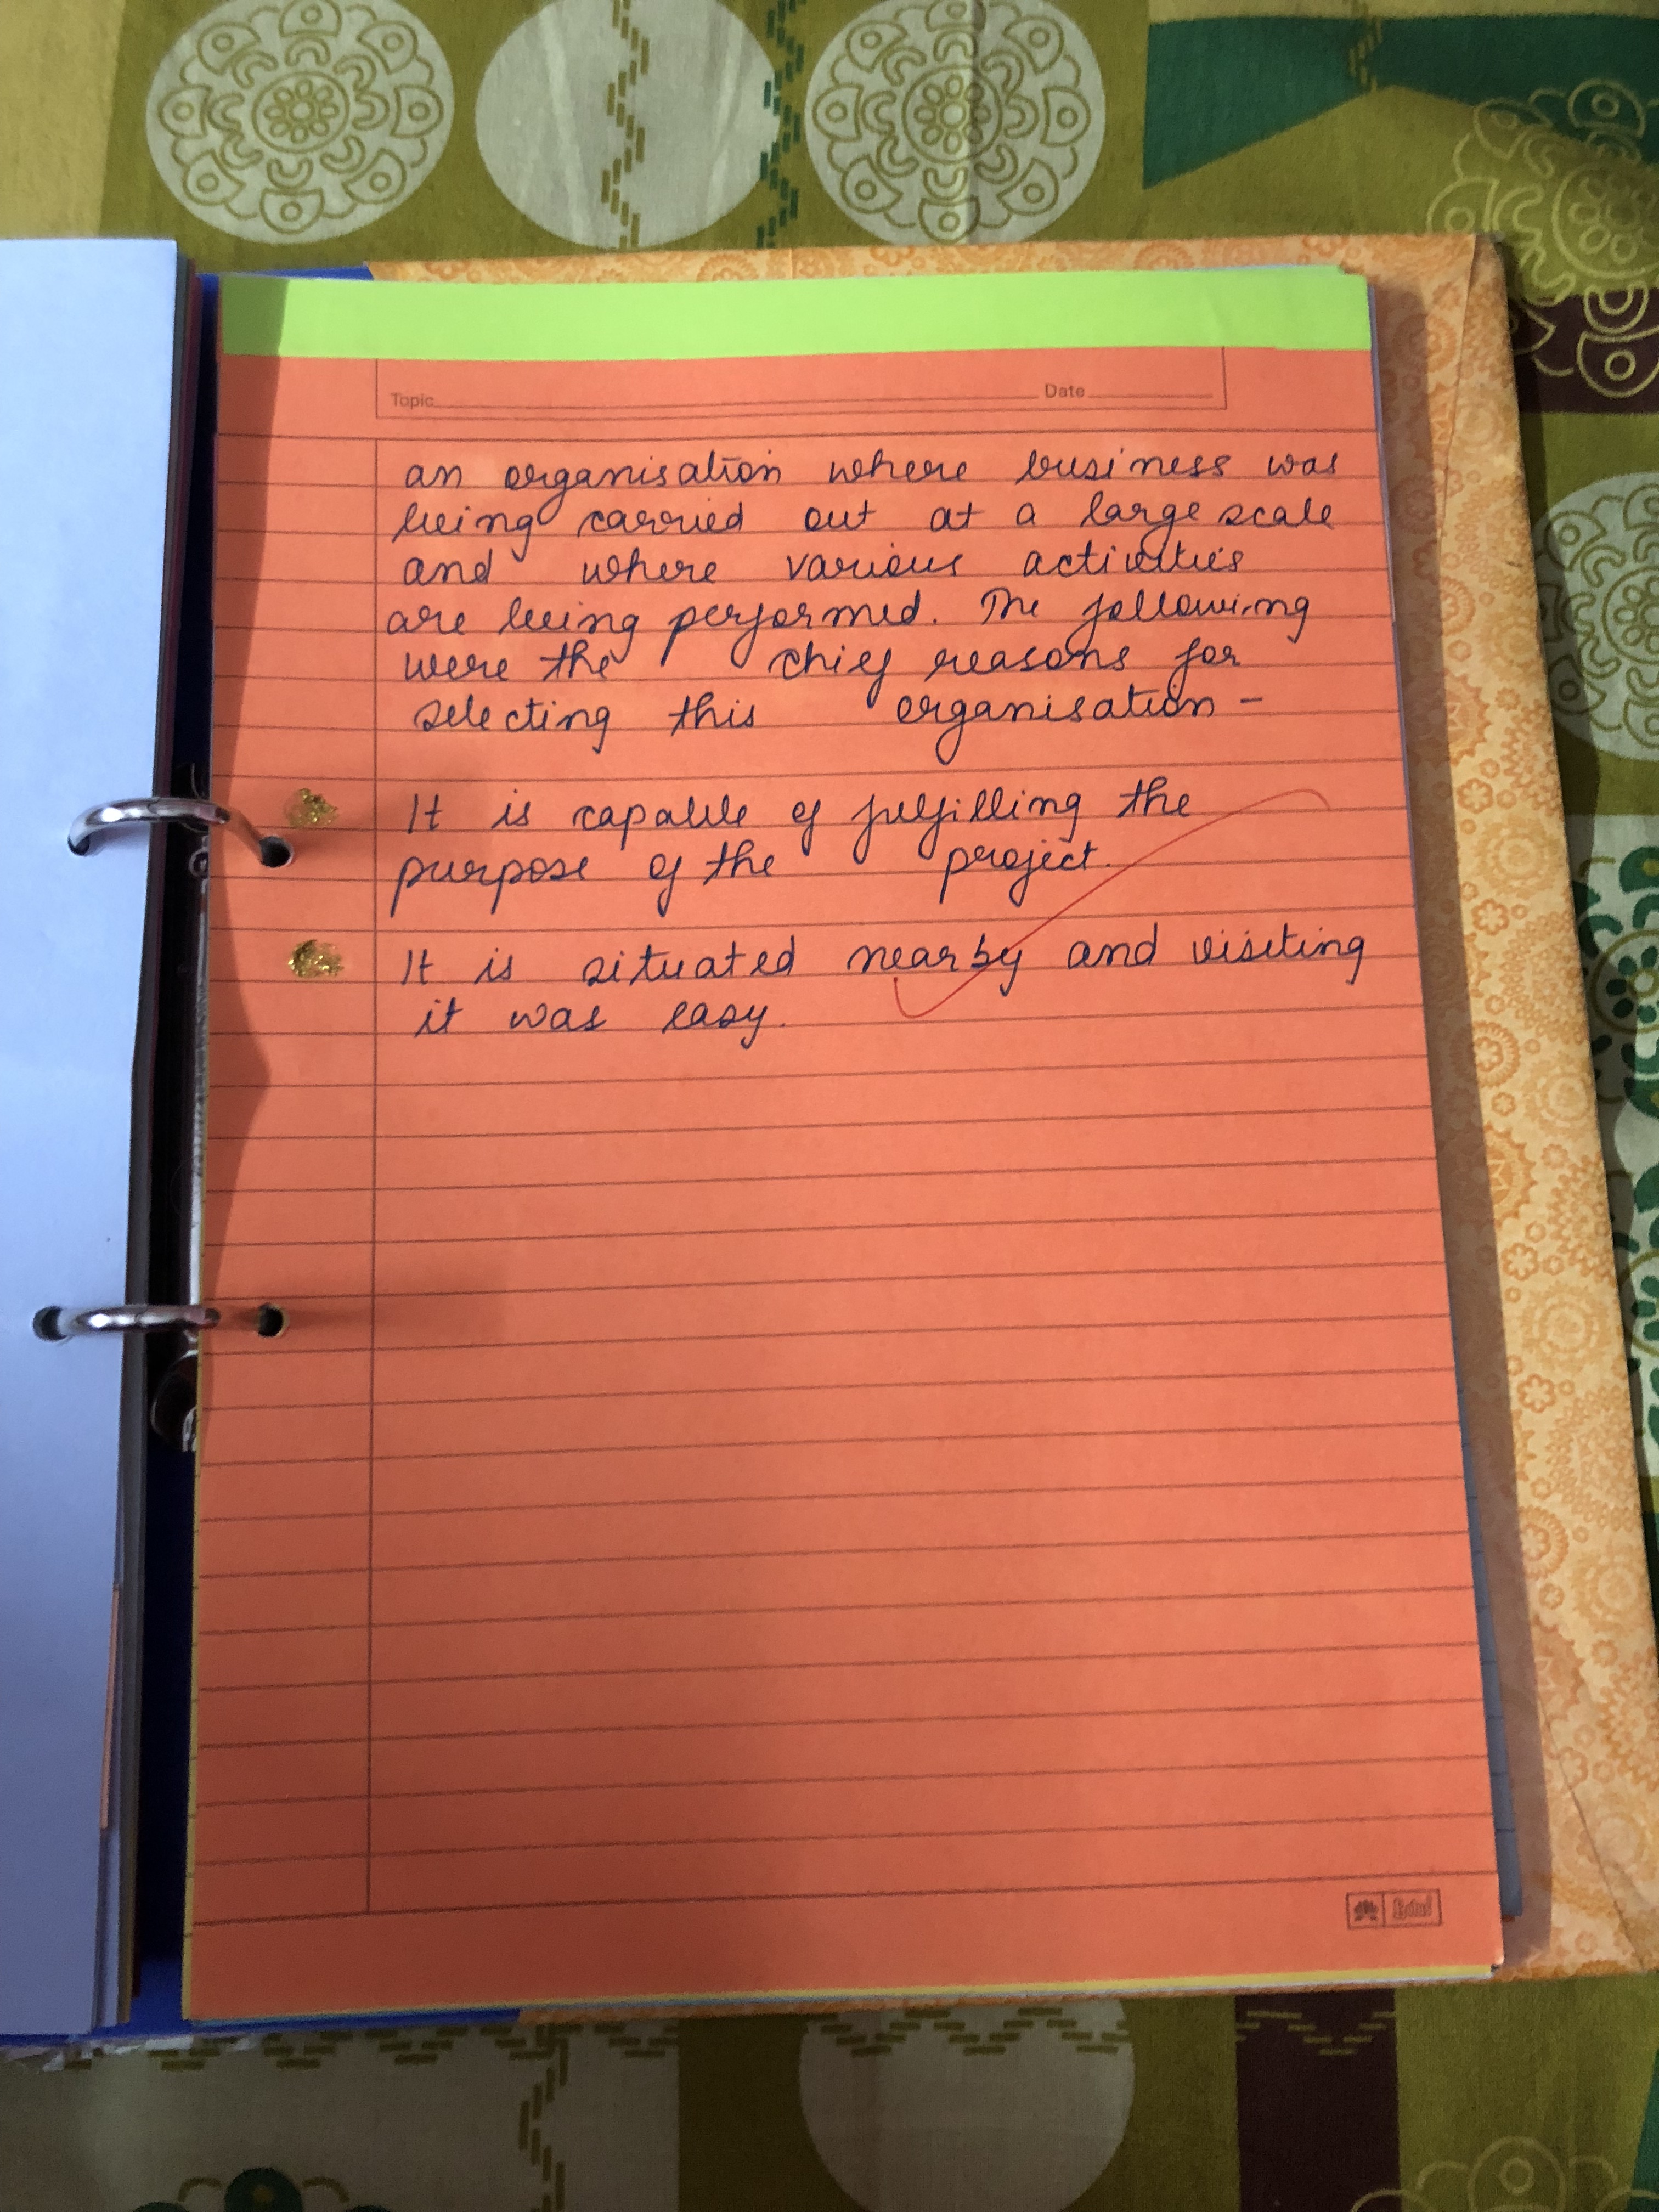 Topic Date
an organisation where business was
being carried out at a large scale
and where various activities
are being performed. The following
were the chief reasons for
selecting this organisation -
It is capable of fulfilling the
purpose of the project.
It is situated nearby and visiting
it was easy.